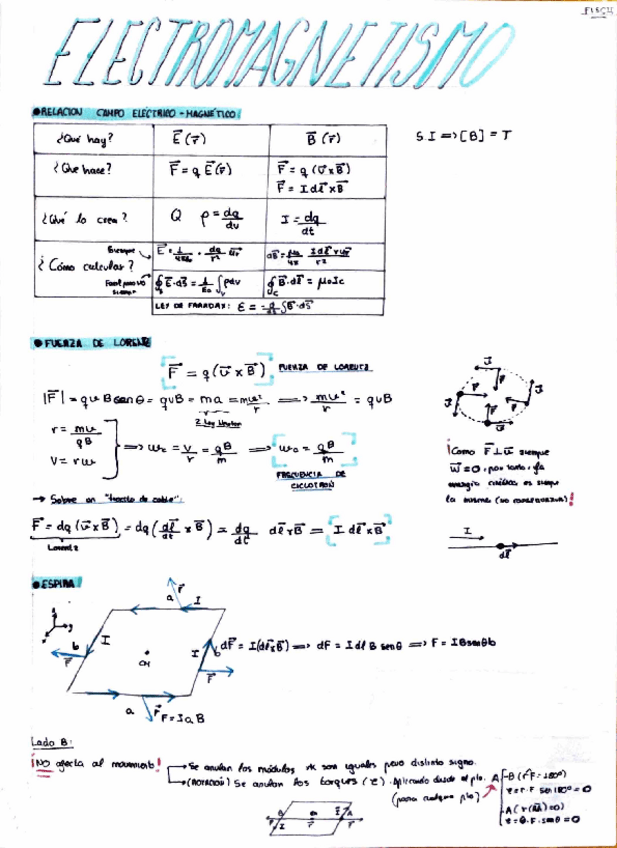 ELECTROMAGNETISMO
RELACION CAMPO ELÉCTRICO - MAGNÉTICO:
¿Qué hay? E⃗ (r⃗) B⃗ (r⃗)
S I => [B] = T
¿Que hace? F⃗ = q E⃗(r⃗) F⃗ = q (v⃗ x B⃗)
F⃗ = I dl⃗ x B⃗
¿Qué lo crea? Q ρ = dq/dv I = dq/dt
¿Cómo calcular?
Siempre
∮ E⃗·dS⃗ = 1/ε₀ ∫ρdv ∮ B⃗·dl⃗ = μ₀I
LEY DE FARADAY: ε = - d/dt ∫B⃗·dS⃗
FUERZA DE LORENTZ
F⃗ = q (v⃗ x B⃗) FUERZA DE LORENTZ
|F⃗| = qvB senθ = qvB = ma = mv²/r => mv²/r = qvB
2 Ley Newton
r = mv/qB
V = rω
=> ω = v/r = qB/m => ω = qB/m
FRECUENCIA DE
CICLOTRÓN
¡Como F⃗ ⊥ v⃗ siempre
W = 0, por tanto, la
energía cinética es siempre
la misma
→ Sobre un "trocito de cable":
F⃗ = dq (v⃗ x B⃗) = dq (dl⃗/dt x B⃗) = dq/dt dl⃗ x B⃗ = I dl⃗ x B⃗
Lorentz
I
dl⃗
ESPIRA
F⃗
a I
b I F⃗
CM
I b
dF⃗ = I(dl⃗ x B⃗) => dF = I dl B senθ => F = IB senθ b
F⃗
a F⃗ F = I a B
Lado B:
¡NO afecta al movimiento! → Se anulan los módulos xk son iguales pero distinto signo.
→ (ROTACIÓN) Se anulan los torques (τ). Aplicando desde el pto. A
(para cualquier pto)
B (r^F = 180º)
τ = r·F sen 180º = 0
τ = 0·F·senθ = 0